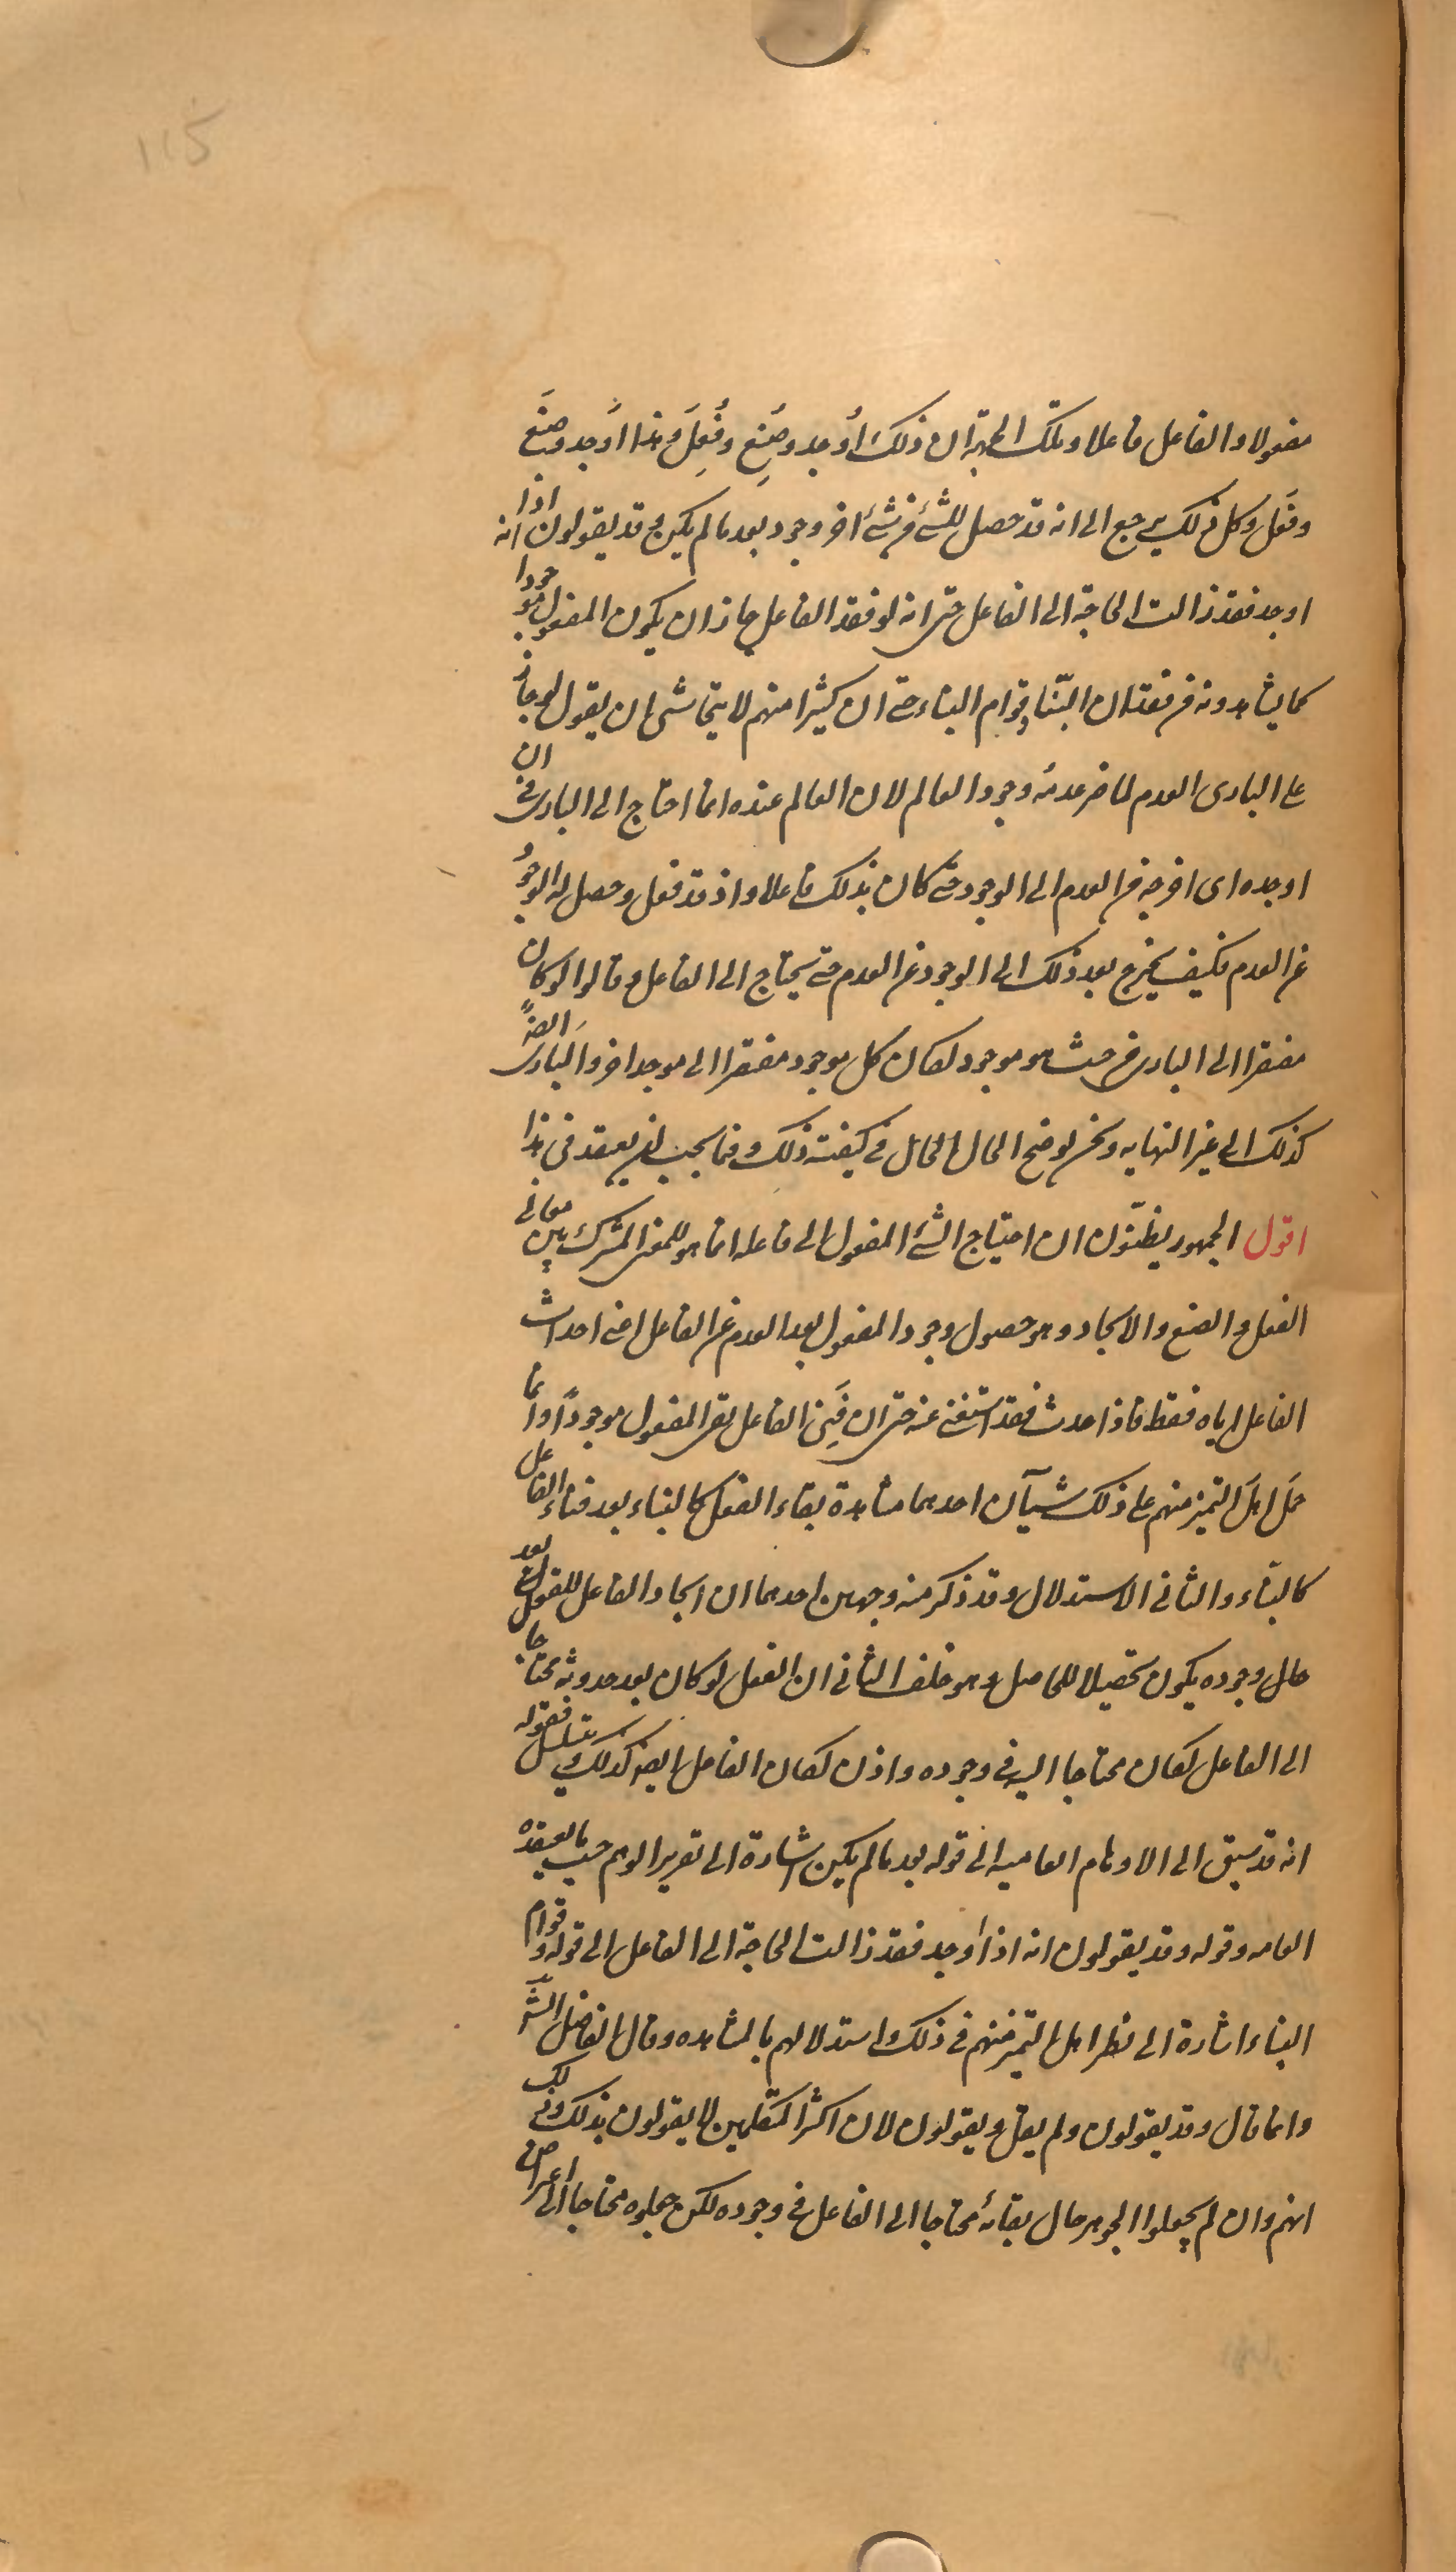 115
مفعولا والفاعل فاعلا وتلك الجهة ان ذلك اُوجد وصُنِع وفُعِلَ وهذا اَوجد وصنَعَ
وفَعَل وكل ذلك يرجع الى انه قد حصل للشئ من شئ اخر وجود بعد ما لم يكن وقد يقولون انه اذا
اوجد فقد زالت الحاجة الى الفاعل حتى انه لو فقد الفاعل جاز ان يكون المفعول موجودا
كما يشاهدونه من فقدان البنّاء وقوام البناء حتى ان كثيرا منهم لا يتحاشى ان يقول لو جاز
على البارى العدم لما ضر عدمه وجود العالم لان العالم عنده انما احتاج الى البارى فى ان
اوجده اى اخرجه من العدم الى الوجود حتى كان بذلك فاعلا واذ قد فعل وحصل له الوجود
عن العدم فكيف يخرج بعد ذلك الى الوجود عن العدم حتى يحتاج الى الفاعل وقالوا لو كان
مفتقرا الى البارى من حيث هو موجود لكان كل موجود مفتقرا الى موجد اخر والبارى ايضاً
كذلك الى غير النهايه ونحن نوضح الحال الحال فى كيفية ذلك وفيما يجب ان يعتقد فى هذا
اقول الجمهور يظنّون ان احتياج الشئ المفعول الى فاعله انما هو للمعنى المشترك بين معانى
الفعل والصنع والايجاد وهو حصول وجود المفعول بعد العدم عن الفاعل اعنى احداث
الفاعل اياه فقط فاذا حدث فقد استغنى عنه حتى ان فَنِىَ الفاعل بقى المفعول موجودًا وانما
حمَل اهلَ التميز منهم على ذلك شيآن احدهما مشاهدة بقاء الفعل كالبناء بعد فناء الفاعل
كالبنّاء والثانى الاستدلال وقد ذكر منه وجهين احدهما ان ايجاد الفاعل للفعل بعد
حال وجوده يكون تحصيلا للحاصل وهو خلف الثانى ان الفعل لو كان بعد حدوثه محتاجا
الى الفاعل لكان محتاجا اليه فى وجوده واذن لكان الفاعل ايضا كذلك ويتسلسل فقوله
انه قد سبق الى الاوهام العاميه الى قوله بعد ما لم يكن اشارة الى تقرير الوهم حسب ما يعتقده
العامه وقوله وقد يقولون انه اذا اوجد فقد زالت الحاجة الى الفاعل الى قوله وقوام
البناء اشارة الى نظر اهل التميز منهم فى ذلك واستدلالهم بالمشاهده وقال الفاضل الش
وانما قال وقد يقولون ولم يقل ويقولون لان اكثر المتكلمين لا يقولون بذلك وذلك
انهم وان لم يجعلوا الجوهر حال بقائه محتاجا الى الفاعل فى وجوده لكن جعلوه محتاجا الى اعراض